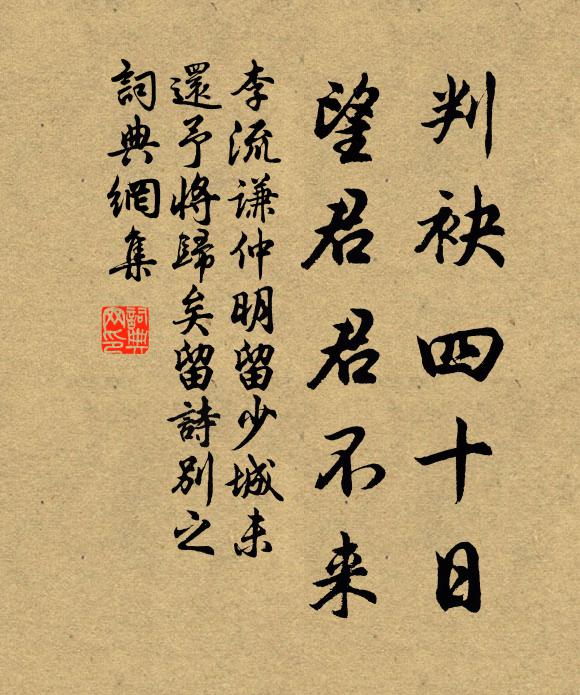 判袂四十日
望君君不来
李流謙仲明留少城未
還予將歸矣留詩別之
詞典網集
詞典网印